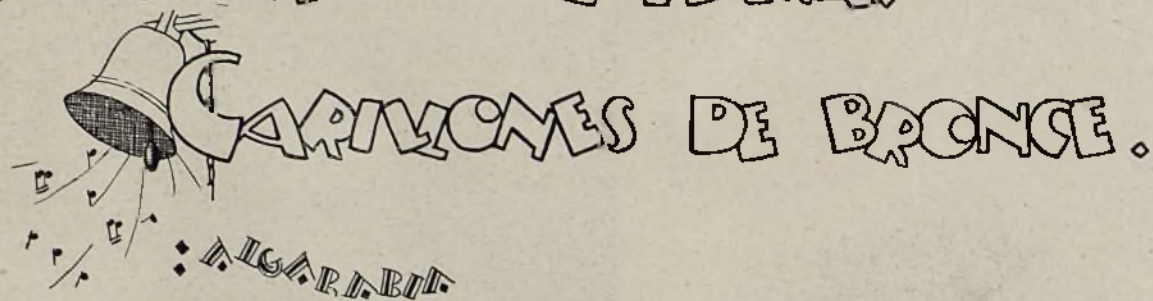 CARILLONES DE BRONCE.
: ALGARABIA